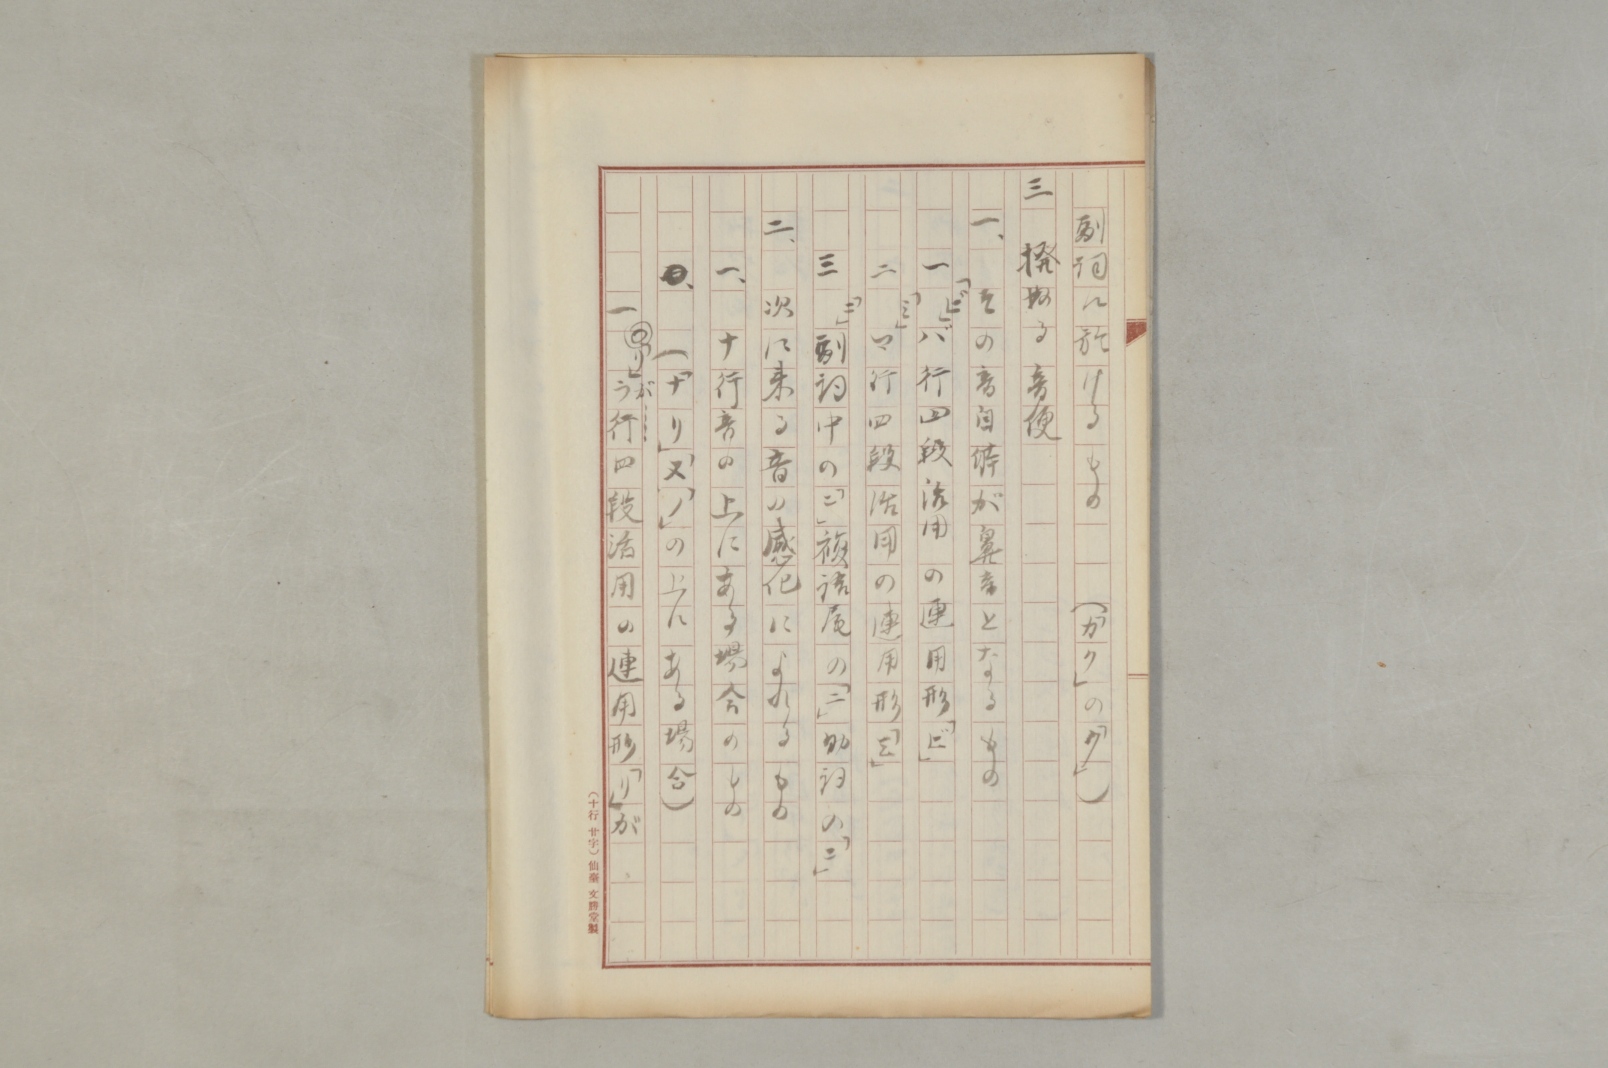 副詞に於けるもの　（「カク」の「ク」）
三　撥ぬる音便
一、その音自体が鼻音となるもの
一　「ビ」バ行四段活用の連用形「ビ」
二　「ミ」マ行四段活用の連用形「ミ」
三　「ニ」副詞中の「ニ」複語尾の「ニ」助詞の「ニ」
二、次に来る音の感化によれるもの
一、ナ行音の上にある場合のもの
（「ナリ」又「ノ」の上にある場合）
一　「リ」がラ行四段活用の連用形「リ」が
（十行 廿字）仙台 文勝堂製